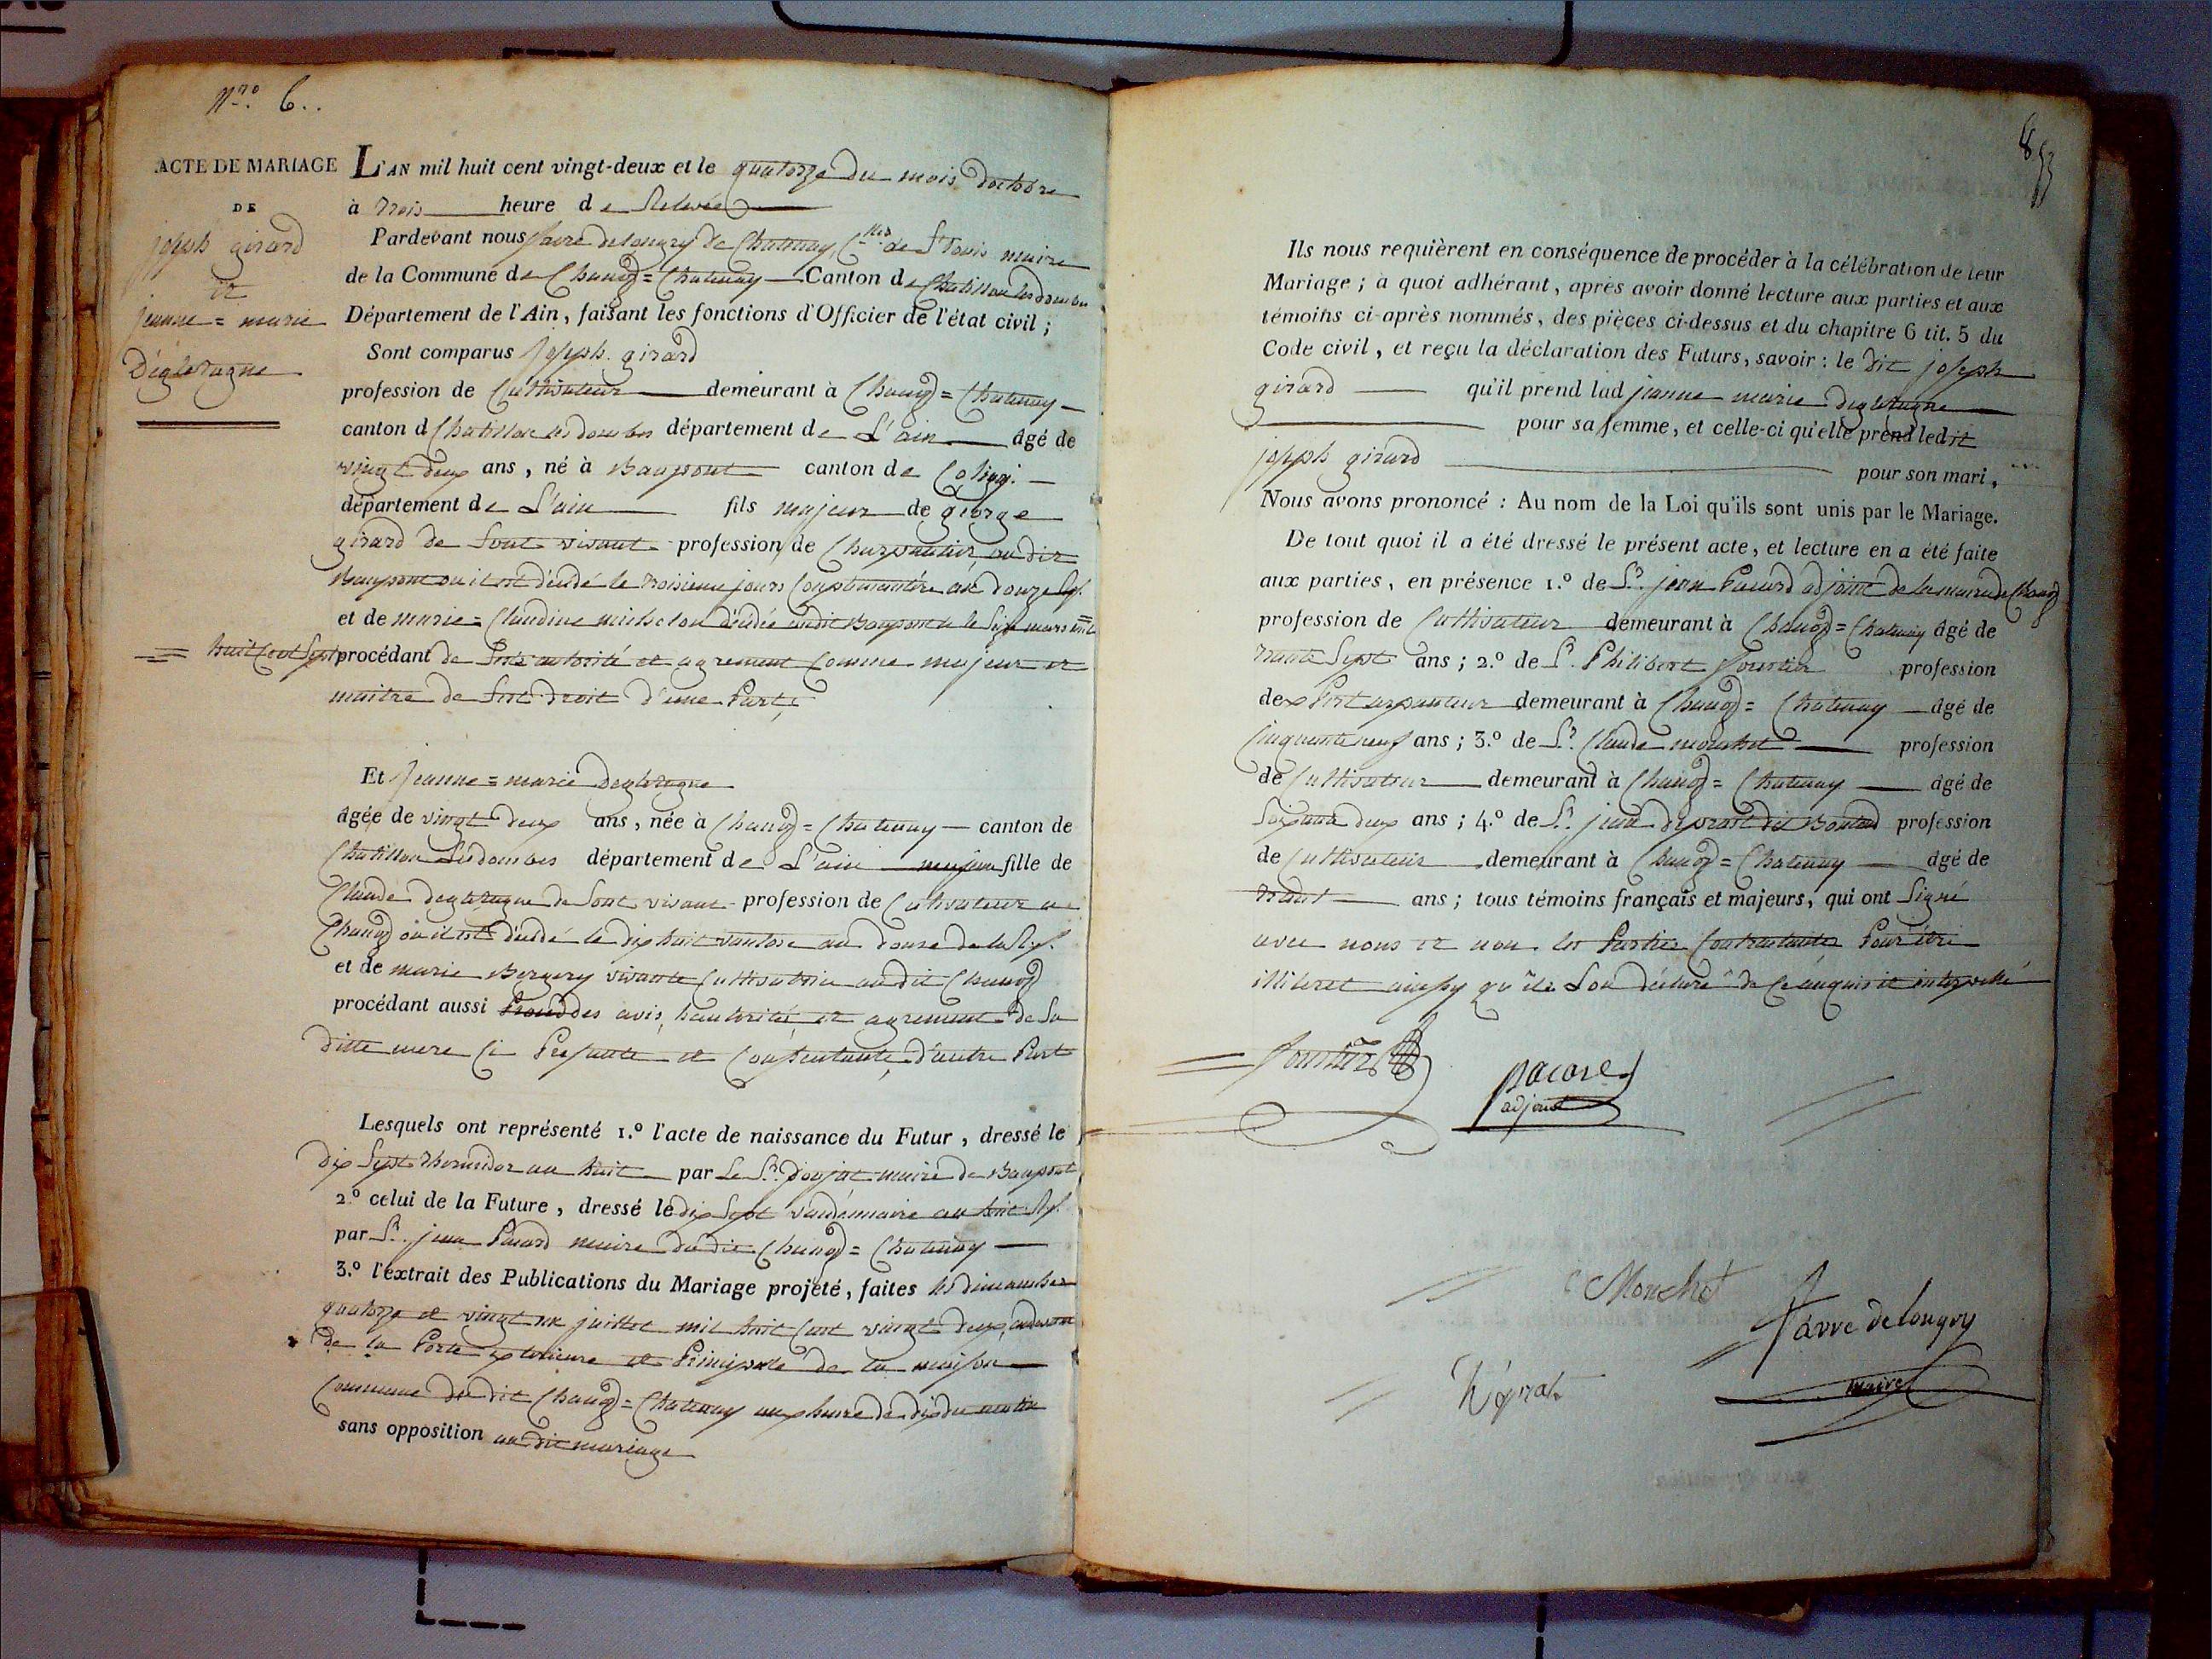 N.ro 6..
ACTE DE MARIAGE
DE
joseph girard
et
jeanne = marie
Déglétagne
L'AN mil huit cent vingt-deux et le quatorze du mois doctobre
à trois heure de Relevée
Pardevant nous favre delongry de Chatenay, de St Louis maire
de la Commune de Chanoz = Chatenay Canton de Chatillon les dombes
Département de l'Ain, faisant les fonctions d'Officier de l'état civil ;
Sont comparus joseph girard
profession de Cultivateur demeurant à Chanoz = Chatenay
canton d Chatillon les dombes département de L'ain âgé de
vingt deux ans, né à Baupont canton de Coligni
département de L'ain fils majeur de george
girard de sont vivant profession de Charpentier, audit
Baupont ou il est décédé le troisieme jours Complémentére an douze
et de marie = Claudine décédée audit Baupont le Six mars mil
= huit Cent Sept
procédant de sont autorité et agrement Comme majeur et
maitre de sest droit d'une Part ;
Et jeanne = marie deglétagne
âgée de vingt deux ans, née à Chanoz = Chatenay canton de
Chatillon Lesdombes département de L'ain majeur fille de
Claude deglétagne de sont vivant profession de Cultivateur au
Chanoz ou il est décédé le dix huit vantose an douze de la
et de marie Bergery vivante Cultivatrice audit Chanoz
procédant aussi des avis, hautorité et agrement de Sa
ditte mere Ci Présante et Consentante, d'autre Part
Lesquels ont représenté 1.º l'acte de naissance du Futur, dressé le
dix Sept thermidor an huit par Le Sr. donjat maire de Baupont
2.º celui de la Future, dressé le dix Sept vandémiaire an huit
par Sr. jean Pacard maire du dit Chanoz = Chatenay
3.º l'extrait des Publications du Mariage projeté, faites les dimanches
quatorze et vingt un juillet mil huit Cent vingt deux, audevan
de la Porte extérieure et Principale de la maison
Commune du dit Chanoz = Chatenay aux heure de dix du matin
sans opposition au dit mariage
Ils nous requièrent en conséquence de procéder à la célébration de leur
Mariage ; à quoi adhérant, après avoir donné lecture aux parties et aux
témoins ci-après nommés, des pièces ci-dessus et du chapitre 6 tit. 5 du
Code civil, et reçu la déclaration des Futurs, savoir : le dit joseph
girard qu'il prend lad jeanne marie deglétagne
pour sa femme, et celle-ci qu'elle prend ledit
joseph girard pour son mari,
Nous avons prononcé : Au nom de la Loi qu'ils sont unis par le Mariage.
De tout quoi il a été dressé le présent acte, et lecture en a été faite
aux parties, en présence 1.º de Sr. jean Pacard adjoint de la mairie de Chanoz
profession de Cultivateur demeurant à Chanoz = Chatenay âgé de
trante Sept ans ; 2.º de Sr. Philibert fourtier profession
dexPert arpanteur demeurant à Chanoz = Chatenay âgé de
Cinquante neuf ans ; 3.º de Sr. Claude monchet profession
de Cultivateur demeurant à Chanoz = Chatenay âgé de
Soixante deux ans ; 4.º de Sr. jean déprat dit profession
de Cultivateur demeurant à Chanoz = Chatenay âgé de
trante ans ; tous témoins français et majeurs, qui ont Signé
avec nous et non les Parties Contractantes Pour être
illiteret ainssy qu'ils L'on déclaré de Ce enquis et interpellé
pacard
adjoint
Monchet
favre delongry
maire
déprat